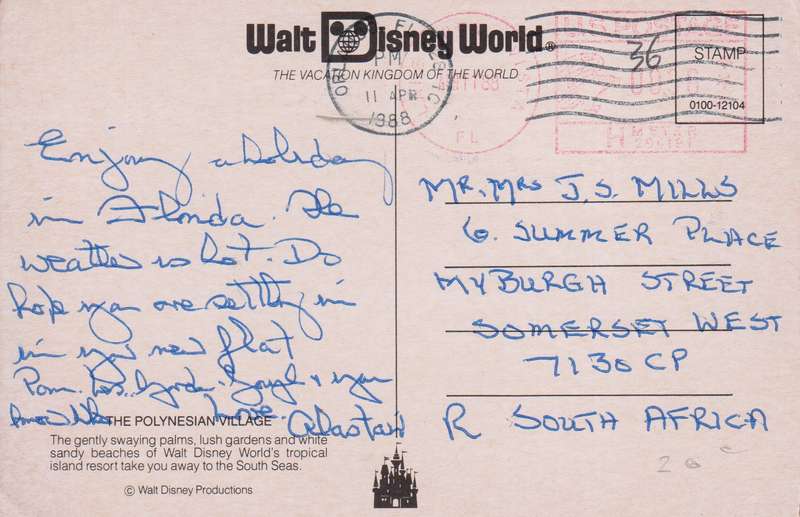 Walt Disney World®
THE VACATION KINGDOM OF THE WORLD
PM
11 APR
1988
FL
36
STAMP
0100-12104
Enjoy a holiday
in Florida. The
weather is hot. Do
hope you are settling in
in your new flat
Pam.
Love. Alastair
MR. MRS J.S. MILLS
6. SUMMER PLACE
MYBURGH STREET
SOMERSET WEST
7130 CP
R SOUTH AFRICA
THE POLYNESIAN VILLAGE
The gently swaying palms, lush gardens and white
sandy beaches of Walt Disney World's tropical
island resort take you away to the South Seas.
© Walt Disney Productions